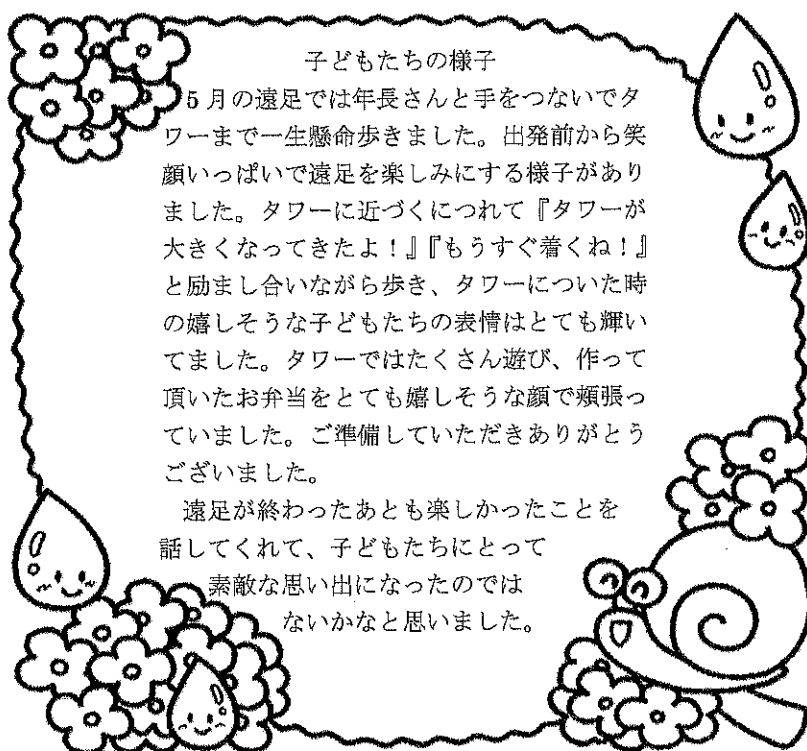 子どもたちの様子
5月の遠足では年長さんと手をつないでタ
ワーまで一生懸命歩きました。出発前から笑
顔いっぱいで遠足を楽しみにする様子があり
ました。タワーに近づくにつれて『タワーが
大きくなってきたよ！』『もうすぐ着くね！』
と励まし合いながら歩き、タワーについた時
の嬉しそうな子どもたちの表情はとても輝い
てました。タワーではたくさん遊び、作って
頂いたお弁当をとても嬉しそうな顔で頬張っ
ていました。ご準備していただきありがとう
ございました。
遠足が終わったあとも楽しかったことを
話してくれて、子どもたちにとって
素敵な思い出になったのでは
ないかなと思いました。